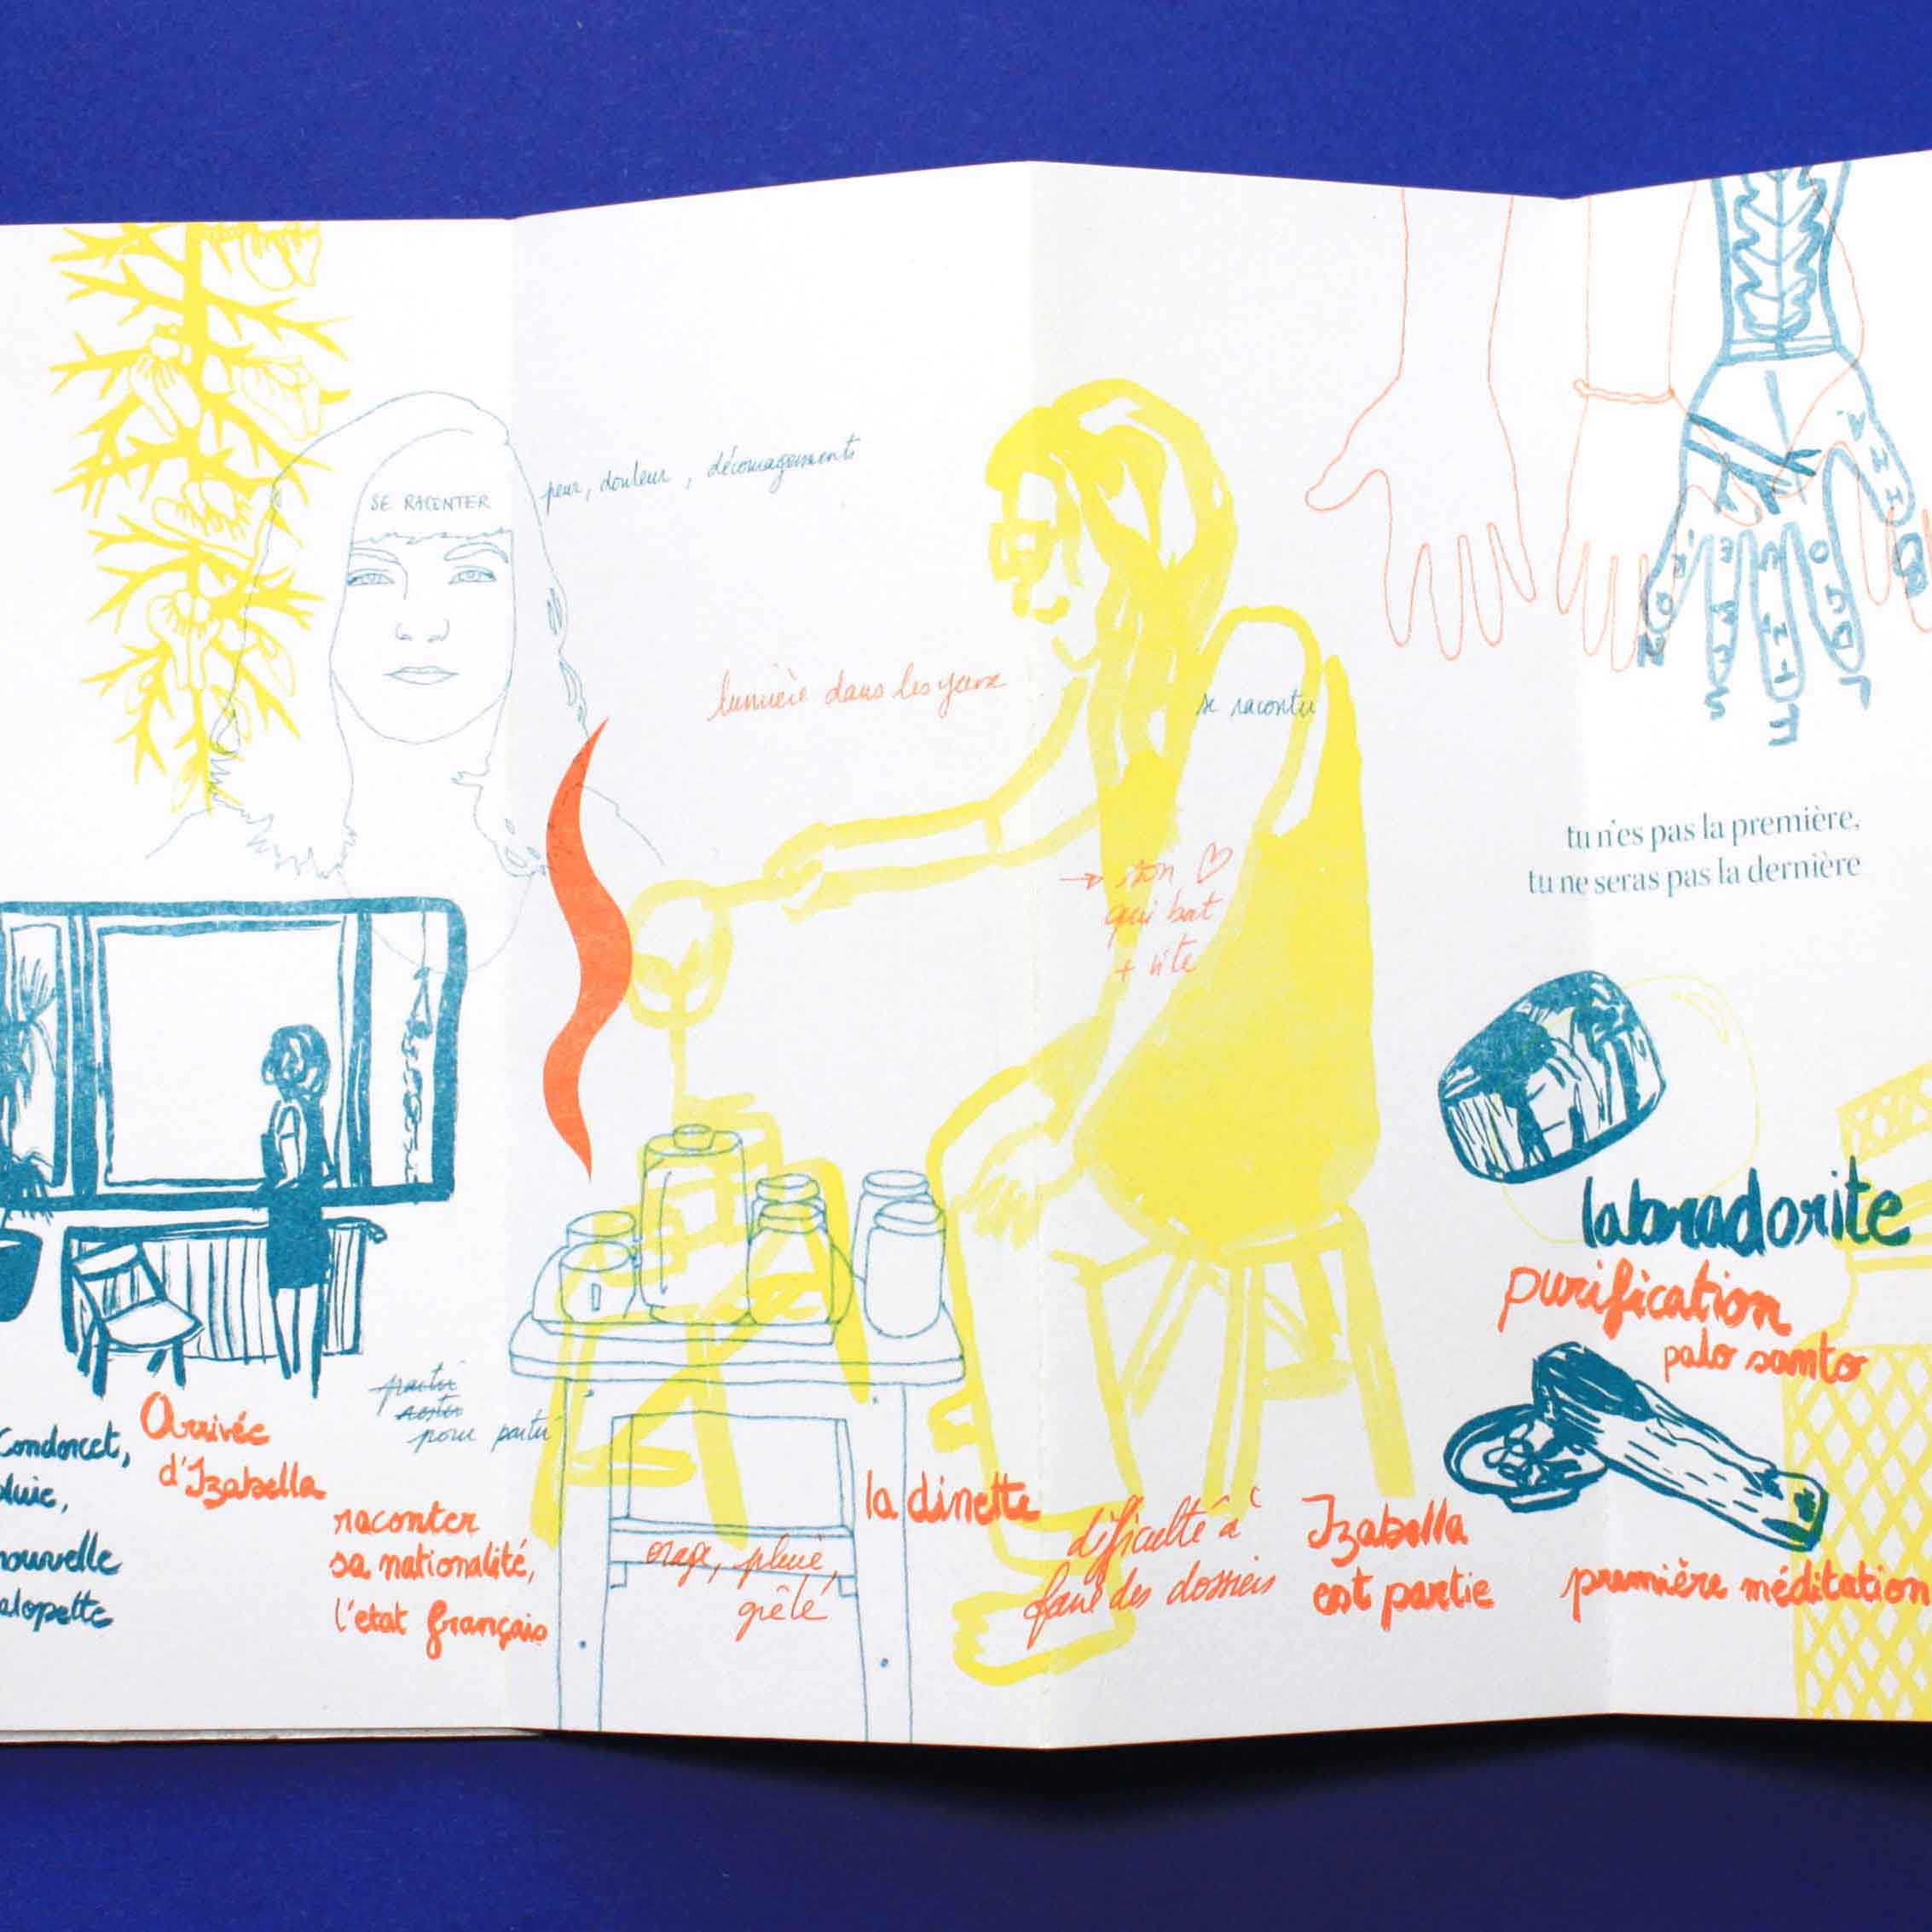 SE RACONTER
peur, douleur, découragements
lumière dans les yeux
se raconter
→ son ♡
qui bat
+ vite
tu n'es pas la première,
tu ne seras pas la dernière
labradorite
purification
palo santo
partir
rester
pour partir
Condorcet,
pluie,
nouvelle
alopette
Arrivée
d'Izabella
raconter
sa nationalité,
l'etat français
orage, pluie,
grêle
la dinette
difficulté à
faire des dossiers
Izabella
est partie
première méditation